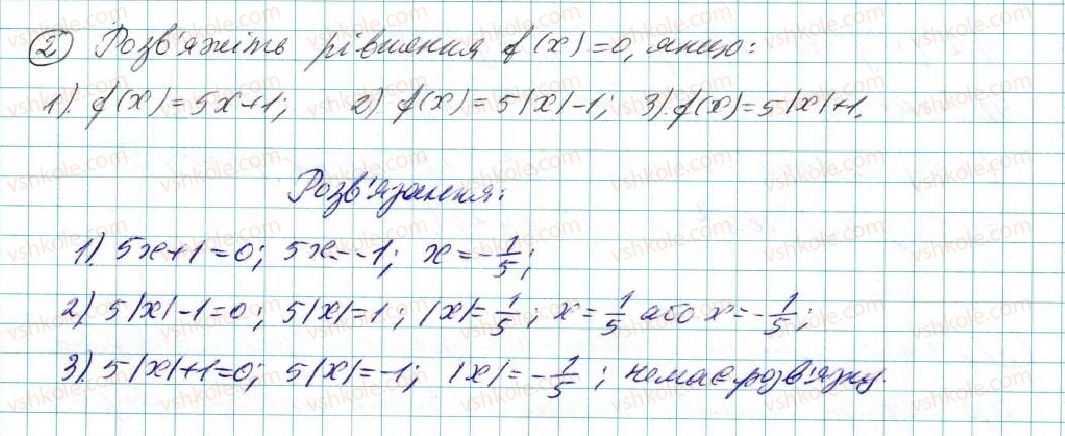 2) Розв'яжіть рівняння f(x)=0, якщо:
1). f(x)=5x+1; 2) f(x)=5|x|-1; 3). f(x)=5|x|+1.
Розв'язання:
1). 5x+1=0; 5x=-1; x=-1/5;
2) 5|x|-1=0; 5|x|=1; |x|=1/5; x=1/5 або x=-1/5;
3). 5|x|+1=0; 5|x|=-1; |x|=-1/5; немає розв'язку.